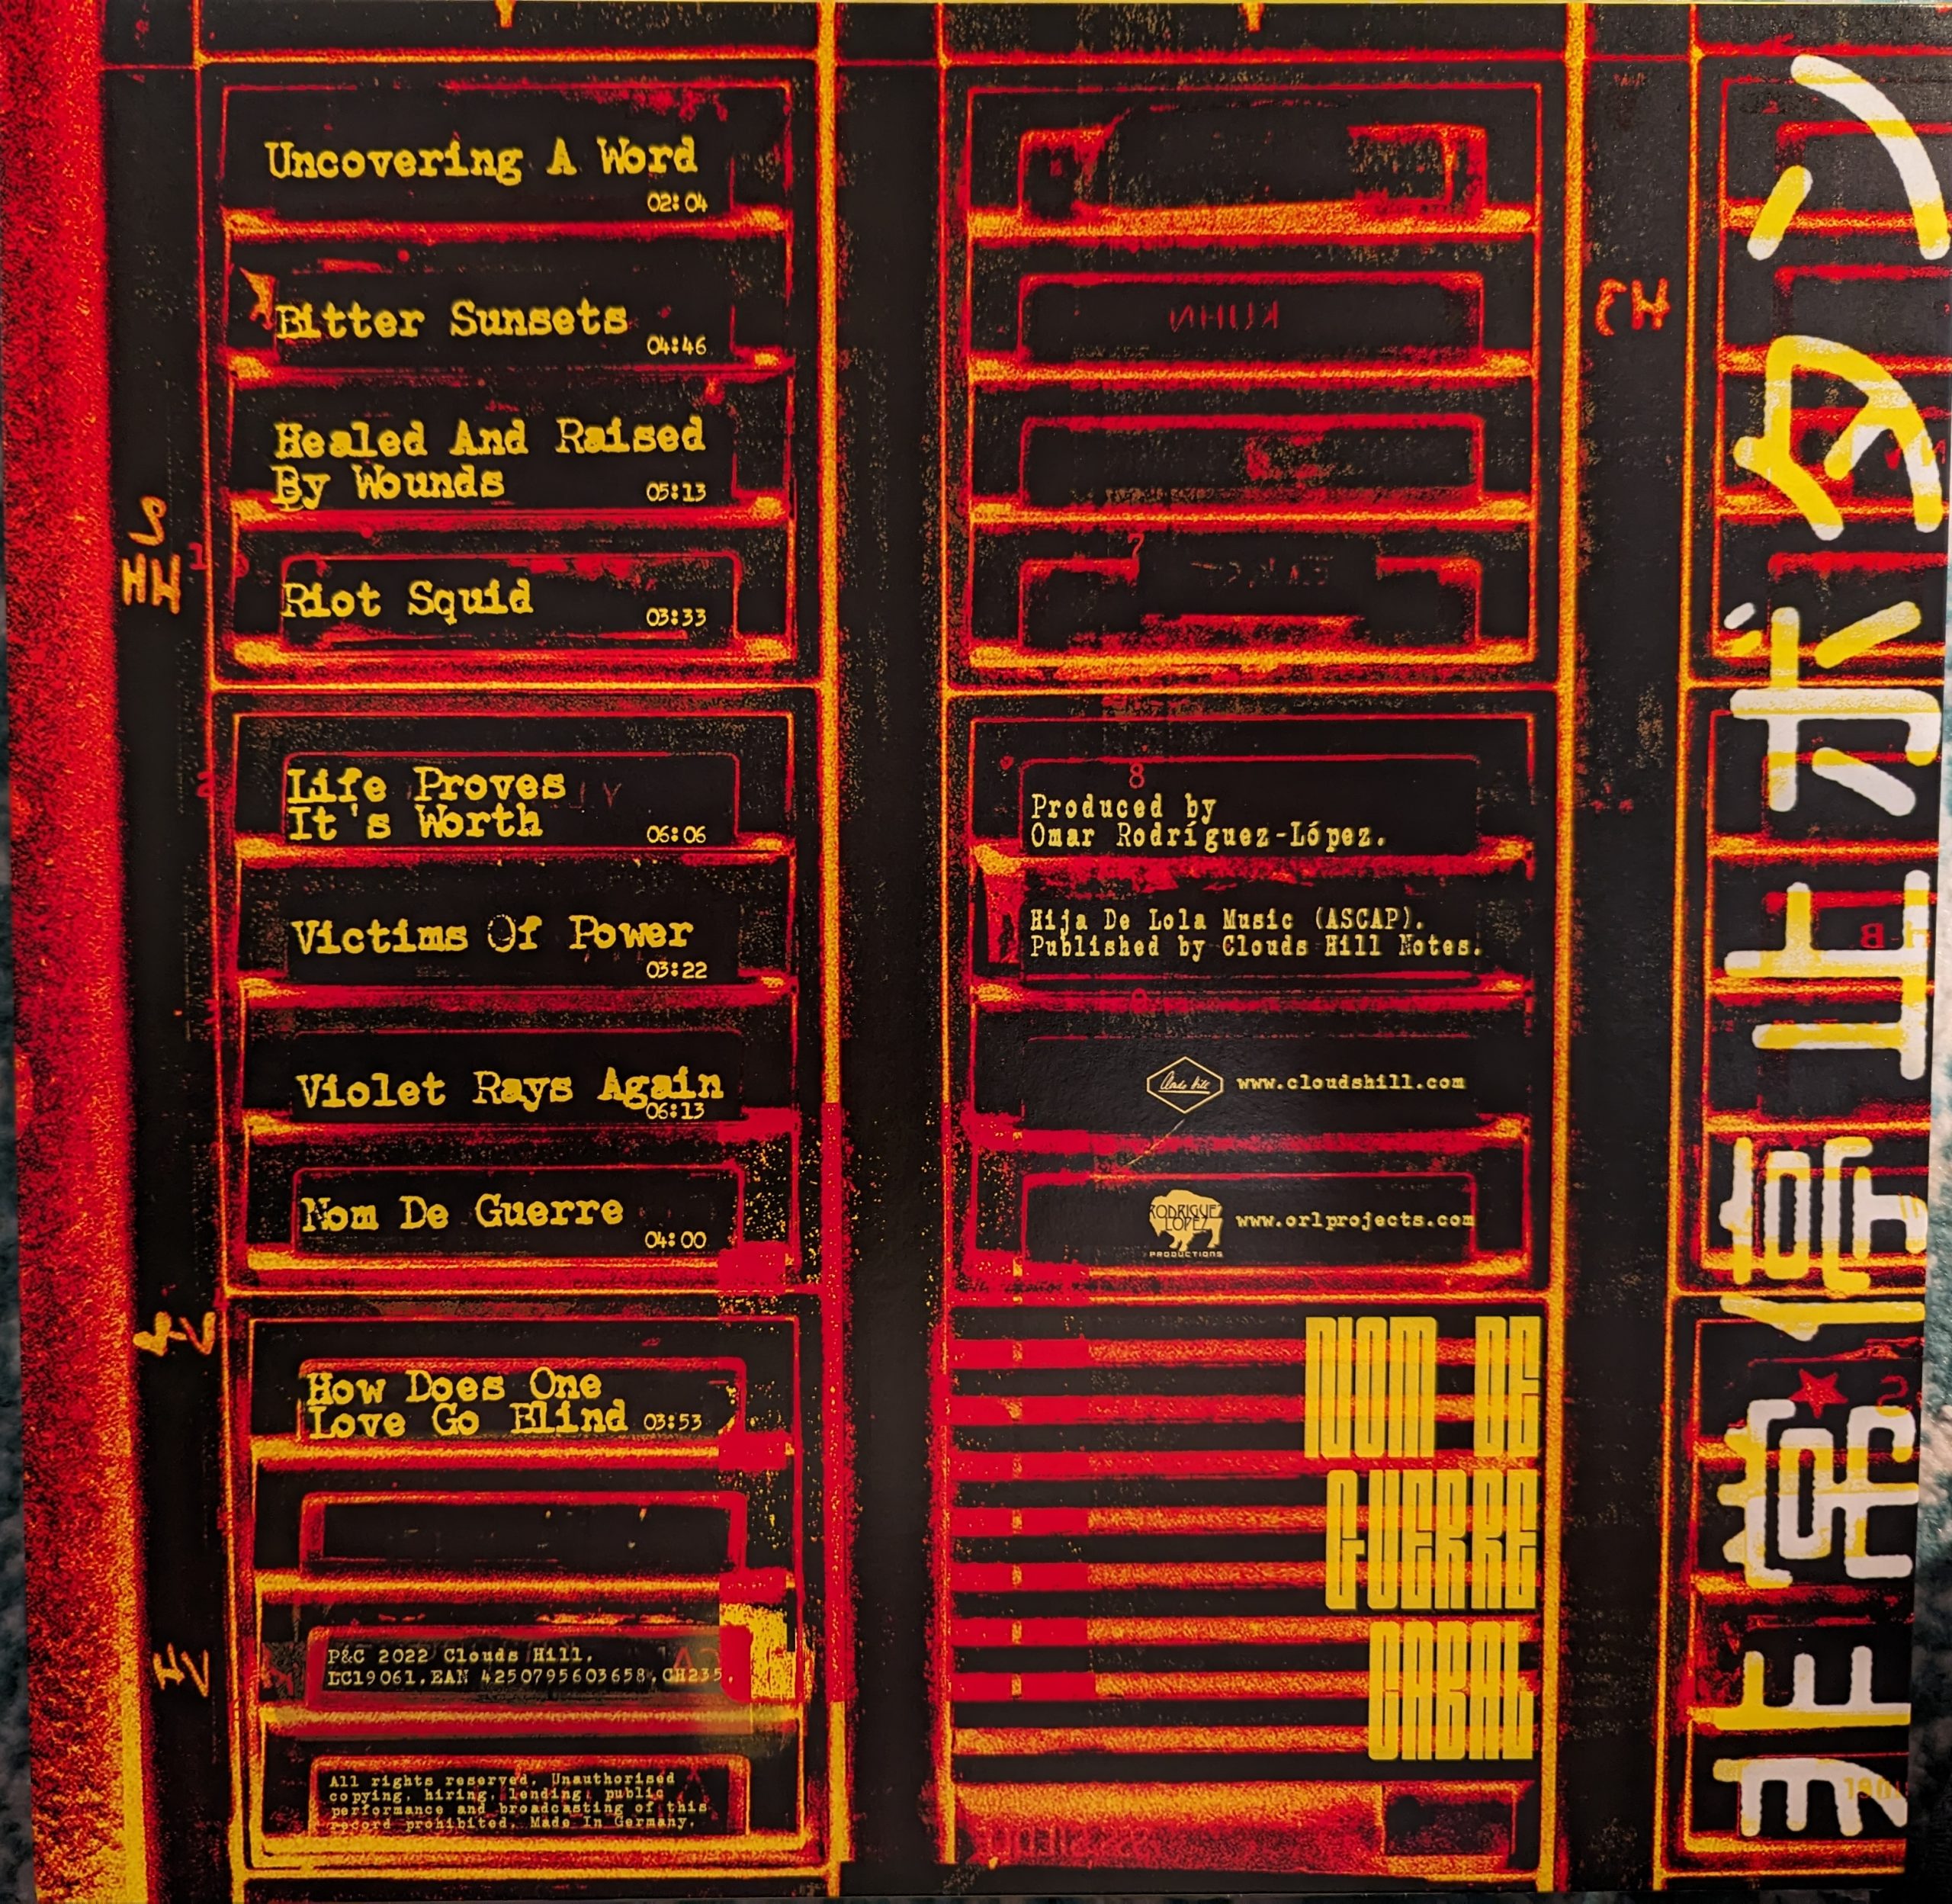 Uncovering A Word
02:04
Bitter Sunsets
04:46
Healed And Raised
By Wounds
05:13
Riot Squid
03:33
Life Proves
It's Worth
06:06
Victims Of Power
03:22
Violet Rays Again
06:13
Nom De Guerre
04:00
How Does One
Love Go Blind 03:53
P&C 2022 Clouds Hill.
LC19061.EAN 4250795603658.CH235.
All rights reserved. Unauthorised
copying, hiring, lending, public
performance and broadcasting of this
record prohibited. Made In Germany.
KUHN
7
8
Produced by
Omar Rodríguez-López.
Hija De Lola Music (ASCAP).
Published by Clouds Hill Notes.
Clouds Hill
www.cloudshill.com
RODRIGUEZ
LOPEZ
PRODUCTIONS
www.orlprojects.com
NOM DE
GUERRE
CABAL
非常停止ボタン